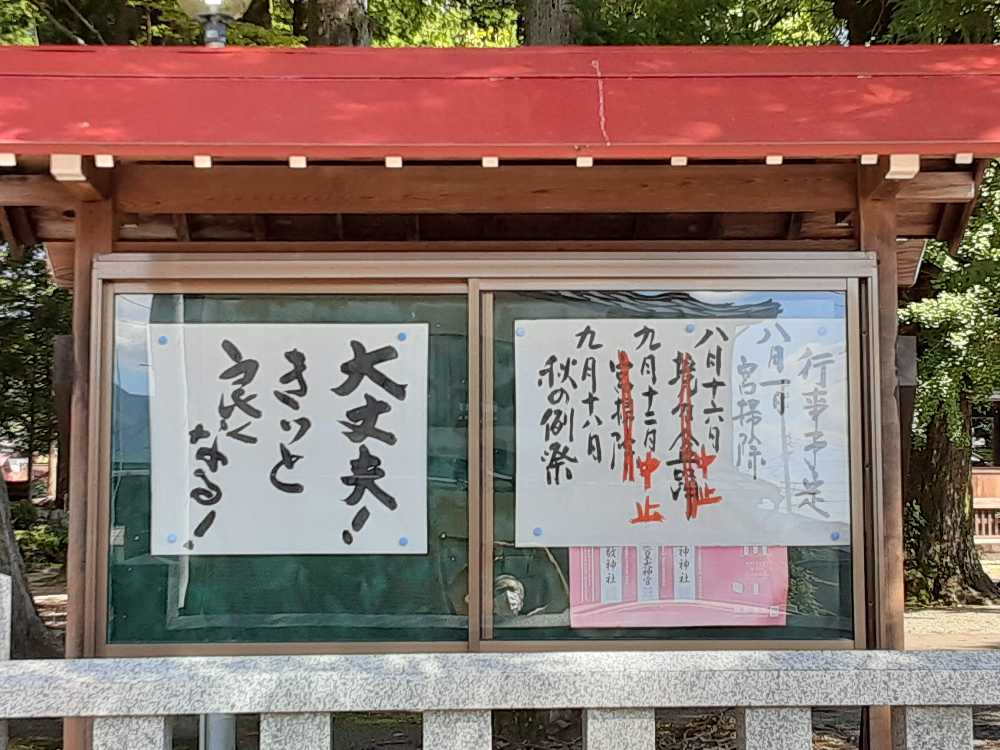 行事予定
八月一日
宮掃除
八月十六日
境内盆踊
中止
九月十二日
宮掃除
中止
九月十八日
秋の例祭
神社
神宮
神社
大丈夫!
きっと
良く
なる!